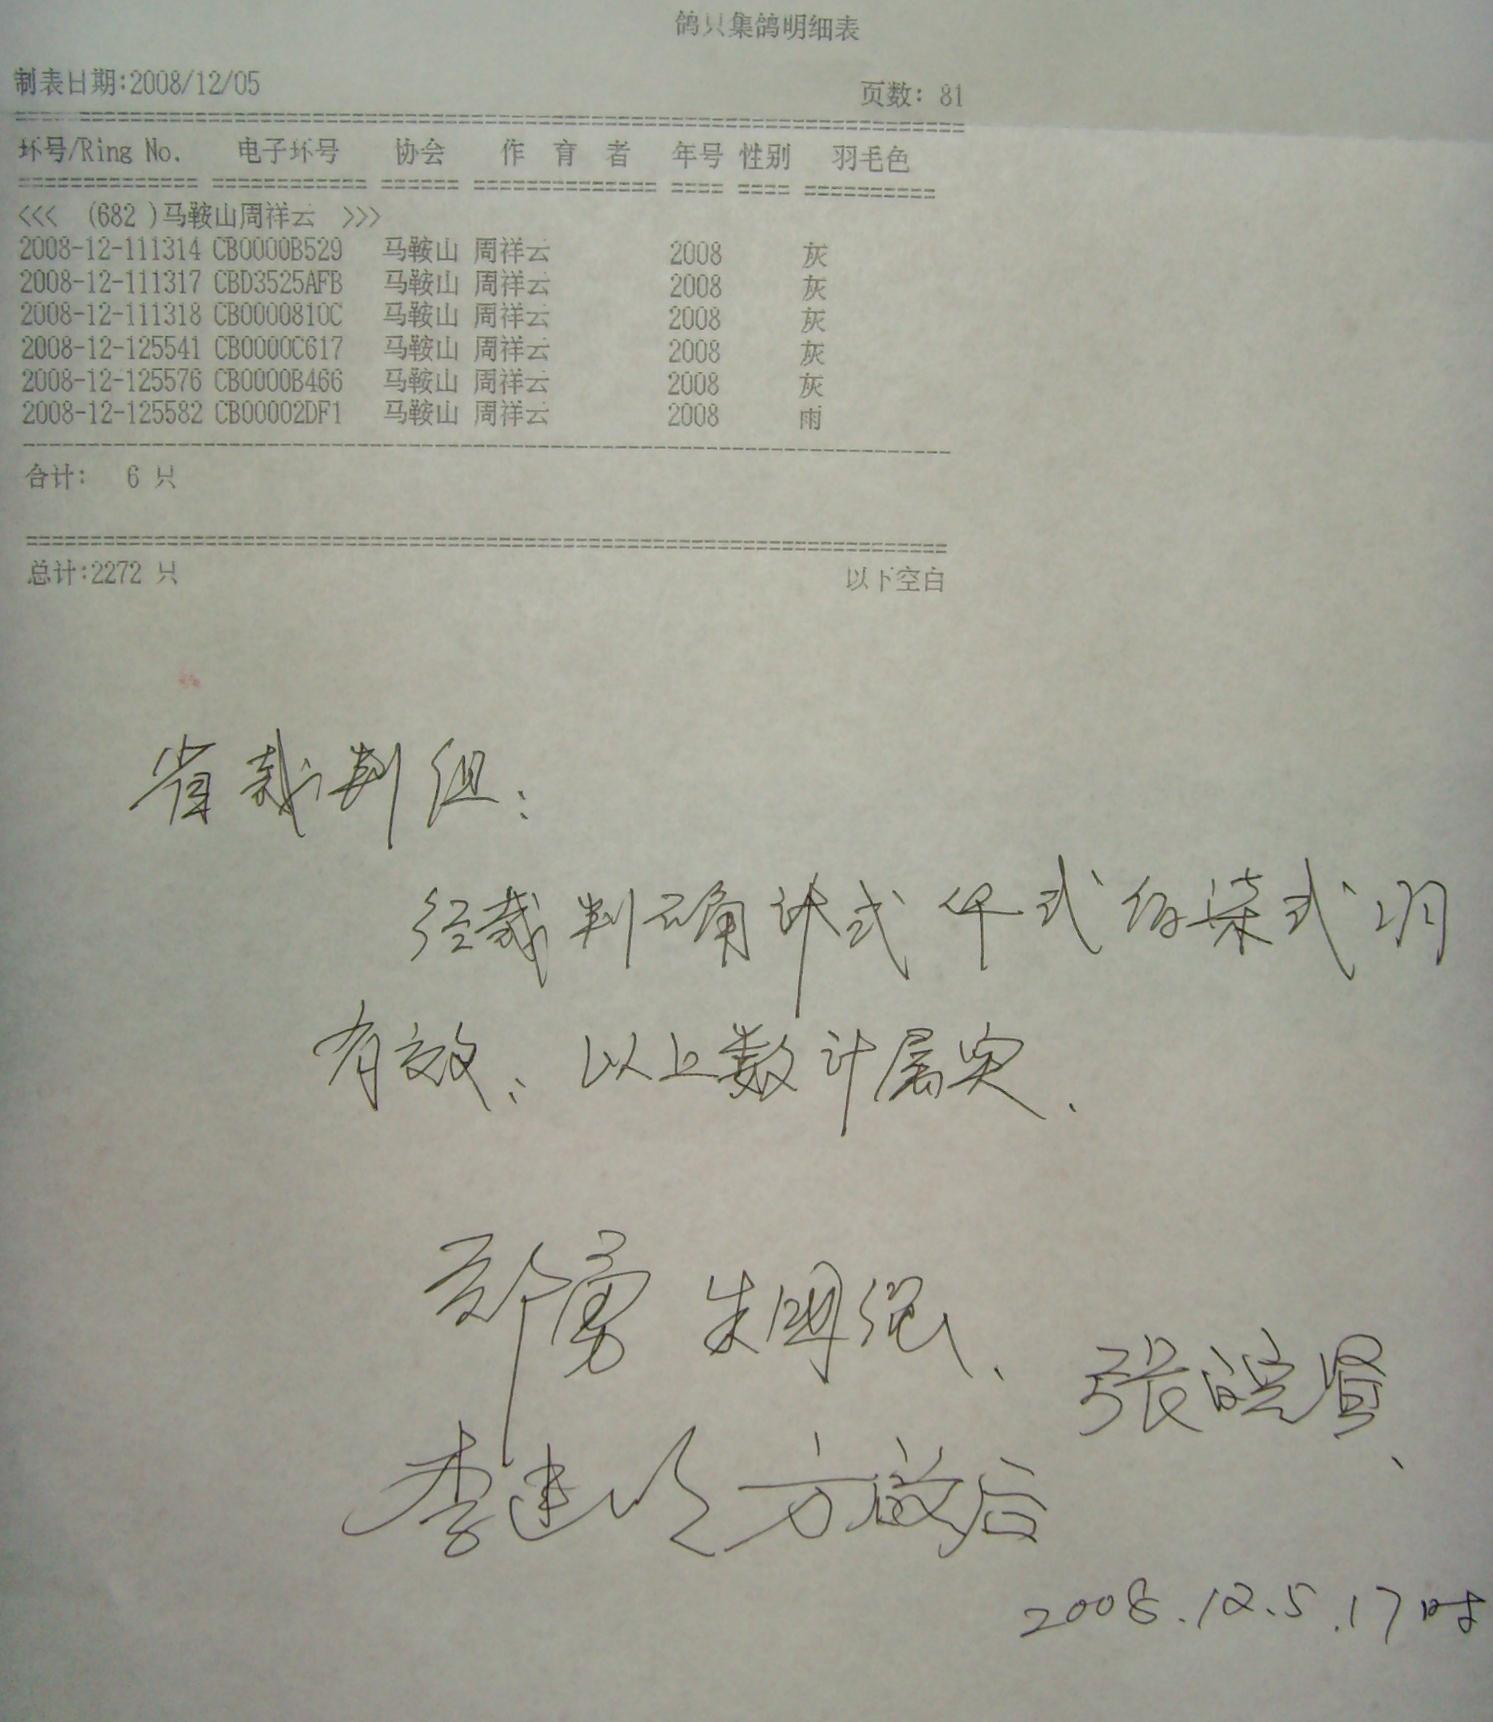 鸽只集鸽明细表
制表日期:2008/12/05 页数: 81
环号/Ring No. 电子环号 协会 作 育 者 年号 性别 羽毛色
<<< (682 )马鞍山周祥云 >>>
2008-12-111314 CB0000B529 马鞍山 周祥云 2008 灰
2008-12-111317 CBD3525AFB 马鞍山 周祥云 2008 灰
2008-12-111318 CB0000810C 马鞍山 周祥云 2008 灰
2008-12-125541 CB0000C617 马鞍山 周祥云 2008 灰
2008-12-125576 CB0000B466 马鞍山 周祥云 2008 灰
2008-12-125582 CB00002DF1 马鞍山 周祥云 2008 雨
合计: 6 只
总计:2272 只 以下空白
省裁判组:
经裁判确认 式仟式佰柒式羽
有效、以上数计属实.
勇 朱国强、
张皖贤、
李建 方
2008.12.5.17时